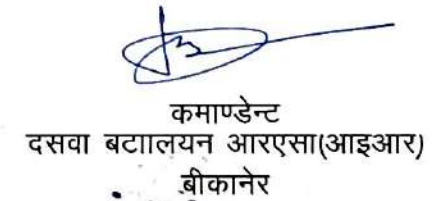 कमाण्डेन्ट
दसवा बटाालयन आरएसा(आइआर)
बीकानेर